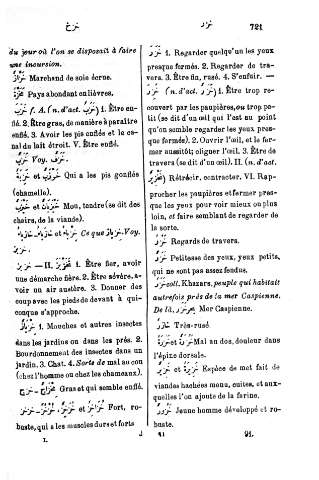 خزخ
خزر
721
du jour où l'on se disposait à faire
une incursion.
خَزَّازٌ Marchand de soie écrue.
Pays abondant en lièvres.
خَزِبَ f. A. (n d'act. خَزَبٌ) 1. Être en-
flé. 2. Être gras, de manière à paraître
enflé. 3. Avoir les pis enflés et le ca-
nal du lait étroit. V. Être enflé.
خَزَبٌ Voy. خَزِبَ.
et Qui a les pis gonflés
(chamelle).
et Mou, tendre (se dit des
chairs, de la viande).
et Ce que Voy.
— II. 1. Être fier, avoir
une démarche fière. 2. Être sévère, a-
voir un air austère. 3. Donner des
coup avec les pieds de devant à qui-
conque s'approche.
خَازِبَازِ 1. Mouches et autres insectes
dans les jardins ou dans les prés. 2.
Bourdonnement des insectes dans un
jardin. 3. Chat. 4. Sorte de mal au cou
(chez l'homme ou chez les chameaux).
Gras et qui semble enflé.
et Fort, ro-
buste, qui a les muscles durs et forts
I.
خَزَرَ 1. Regarder quelqu'un les yeux
presque fermés. 2. Regarder de tra-
vers. 3. Être fin, rusé. 4. S'enfuir. —
خَزِرَ (n d'act. خَزَرٌ) 1. Être trop re-
couvert par les paupières, ou trop pe-
tit (se dit d'un œil qui l'est au point
qu'on semble regarder les yeux pres-
que fermés). 2. Ouvrir l'œil, et le fer-
mer aussitôt; cligner l'œil. 3. Être de
travers (se dit d'un œil). II. (n. d'act.
تَخْزِيرٌ) Rétrécir, contracter. VI. Rap-
procher les paupières et fermer pres-
que les yeux pour voir mieux ou plus
loin, et faire semblant de regarder de
la sorte.
خَزْرٌ Regards de travers.
خَزَرٌ Petitesse des yeux, yeux petits,
qui ne sont pas assez fendus.
خَزَرٌ coll. Khazars, peuple qui habitait
autrefois près de la mer Caspienne.
De là, بحر خزر Mer Caspienne.
خَازِرٌ Très-rusé.
خَزْرَةٌ et خُزَرَةٌ Mal au dos, douleur dans
l'épine dorsale.
خَزِيرٌ et خَزِيرَةٌ Espèce de met fait de
viandes hachées menu, cuites, et aux-
quelles l'on ajoute de la farine.
Jeune homme développé et ro-
buste.
91.